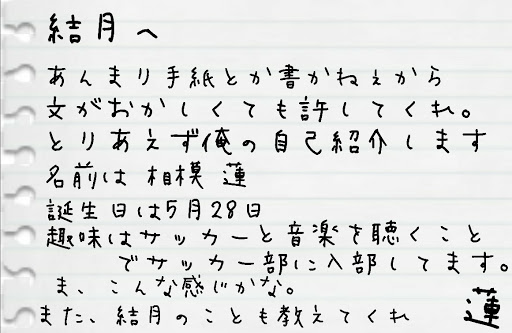 結月へ
あんまり手紙とか書かねぇから
文がおかしくても許してくれ。
とりあえず俺の自己紹介します
名前は 相模 蓮
誕生日は5月28日
趣味はサッカーと音楽を聴くこと
でサッカー部に入部してます。
ま、こんな感じかな。
また、結月のことも教えてくれ
蓮